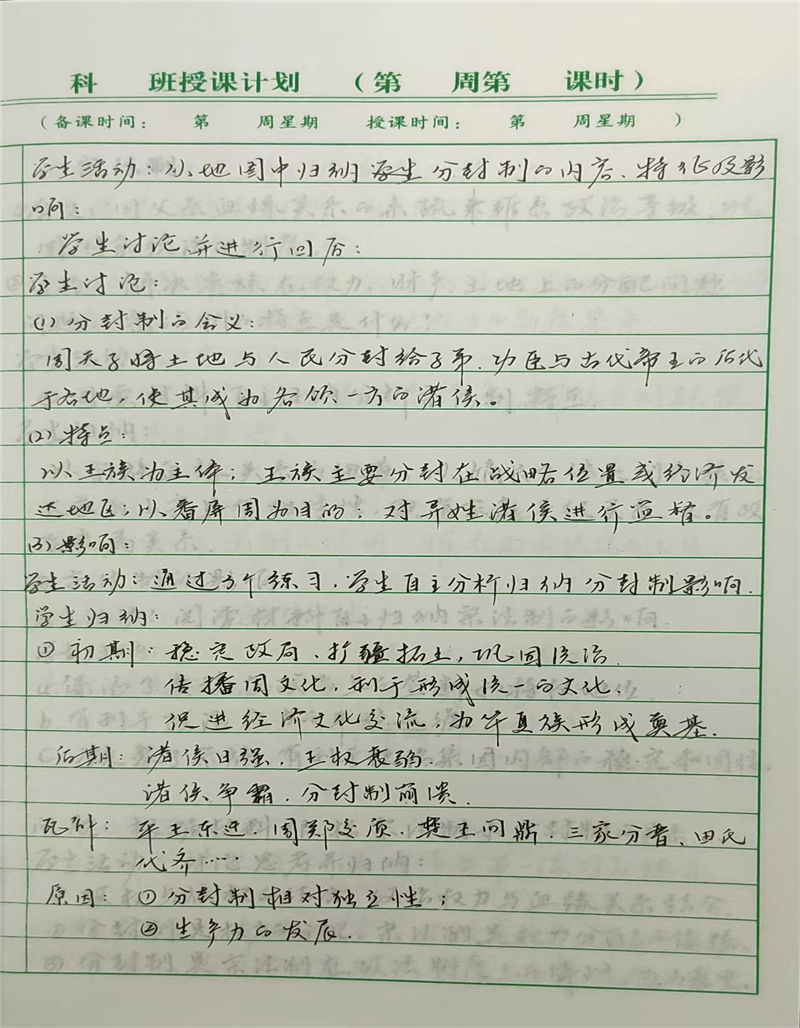 科 班授课计划 （第 周第 课时）
（备课时间： 第 周星期 授课时间： 第 周星期 ）
学生活动：从地图中归纳学生分封制的内容、特征及影
响：
学生讨论并进行回答：
学生讨论：
(1) 分封制的含义：
周天子将土地与人民分封给子弟、功臣与古代帝王的后代
于各地，使其成为各领一方的诸侯。
(2) 特点：
以王族为主体；王族主要分封在战略位置或经济发
达地区；以蕃屏周为目的；对异姓诸侯进行监督。
(3) 影响：
学生活动：通过3个练习，学生自主分析归纳分封制影响.
学生归纳：
① 初期：稳定政局、扩疆拓土，巩固统治.
传播周文化，利于形成统一的文化.
促进经济文化交流，为华夏族形成奠基.
后期：诸侯日强，王权衰弱.
诸侯争霸，分封制崩溃.
瓦解：平王东迁、周郑交质、楚王问鼎、三家分晋、田氏
代齐……
原因：①分封制相对独立性；
②生产力的发展.